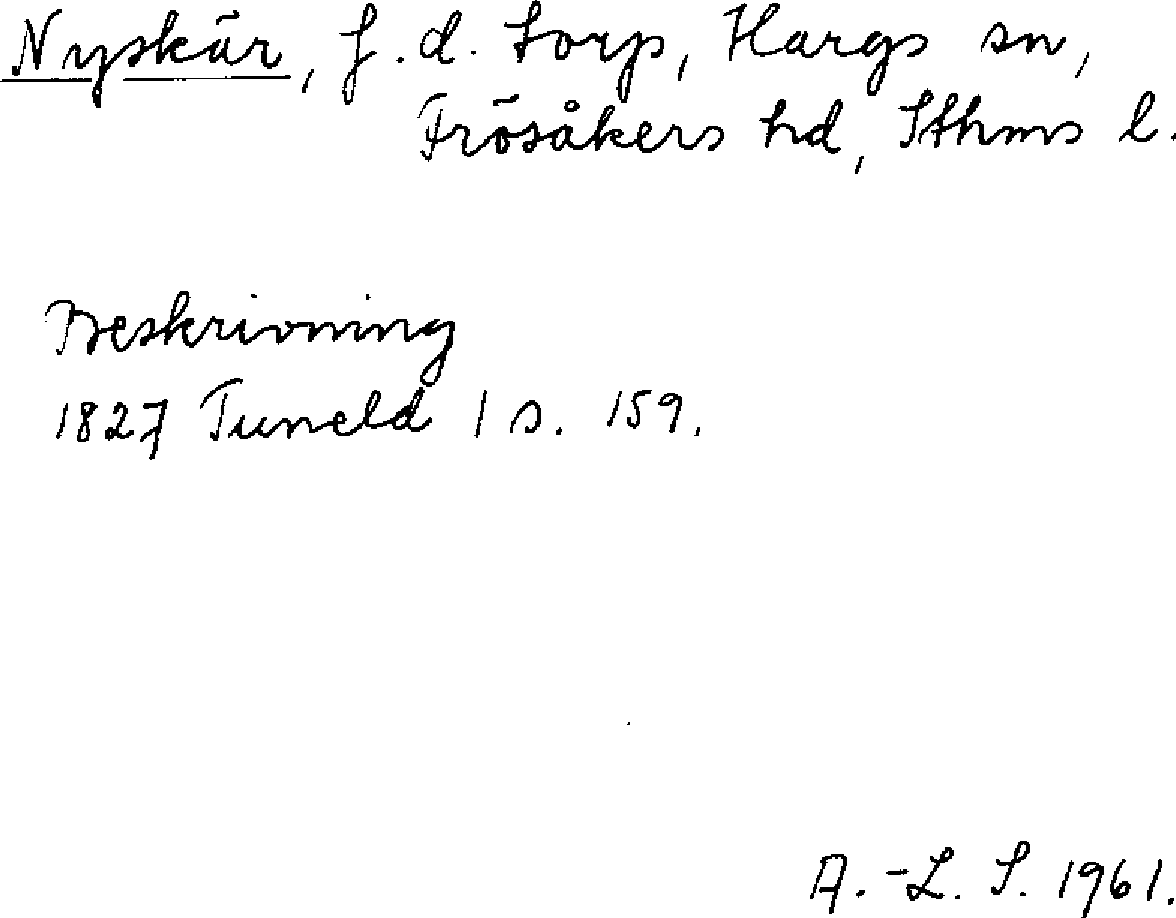 Nyskär, f.d. torp, Hargs sn,
Frösåkers hd, Sthms l.
Beskrivning
1827 Tuneld 1 s. 159.
A.-L. S. 1961.